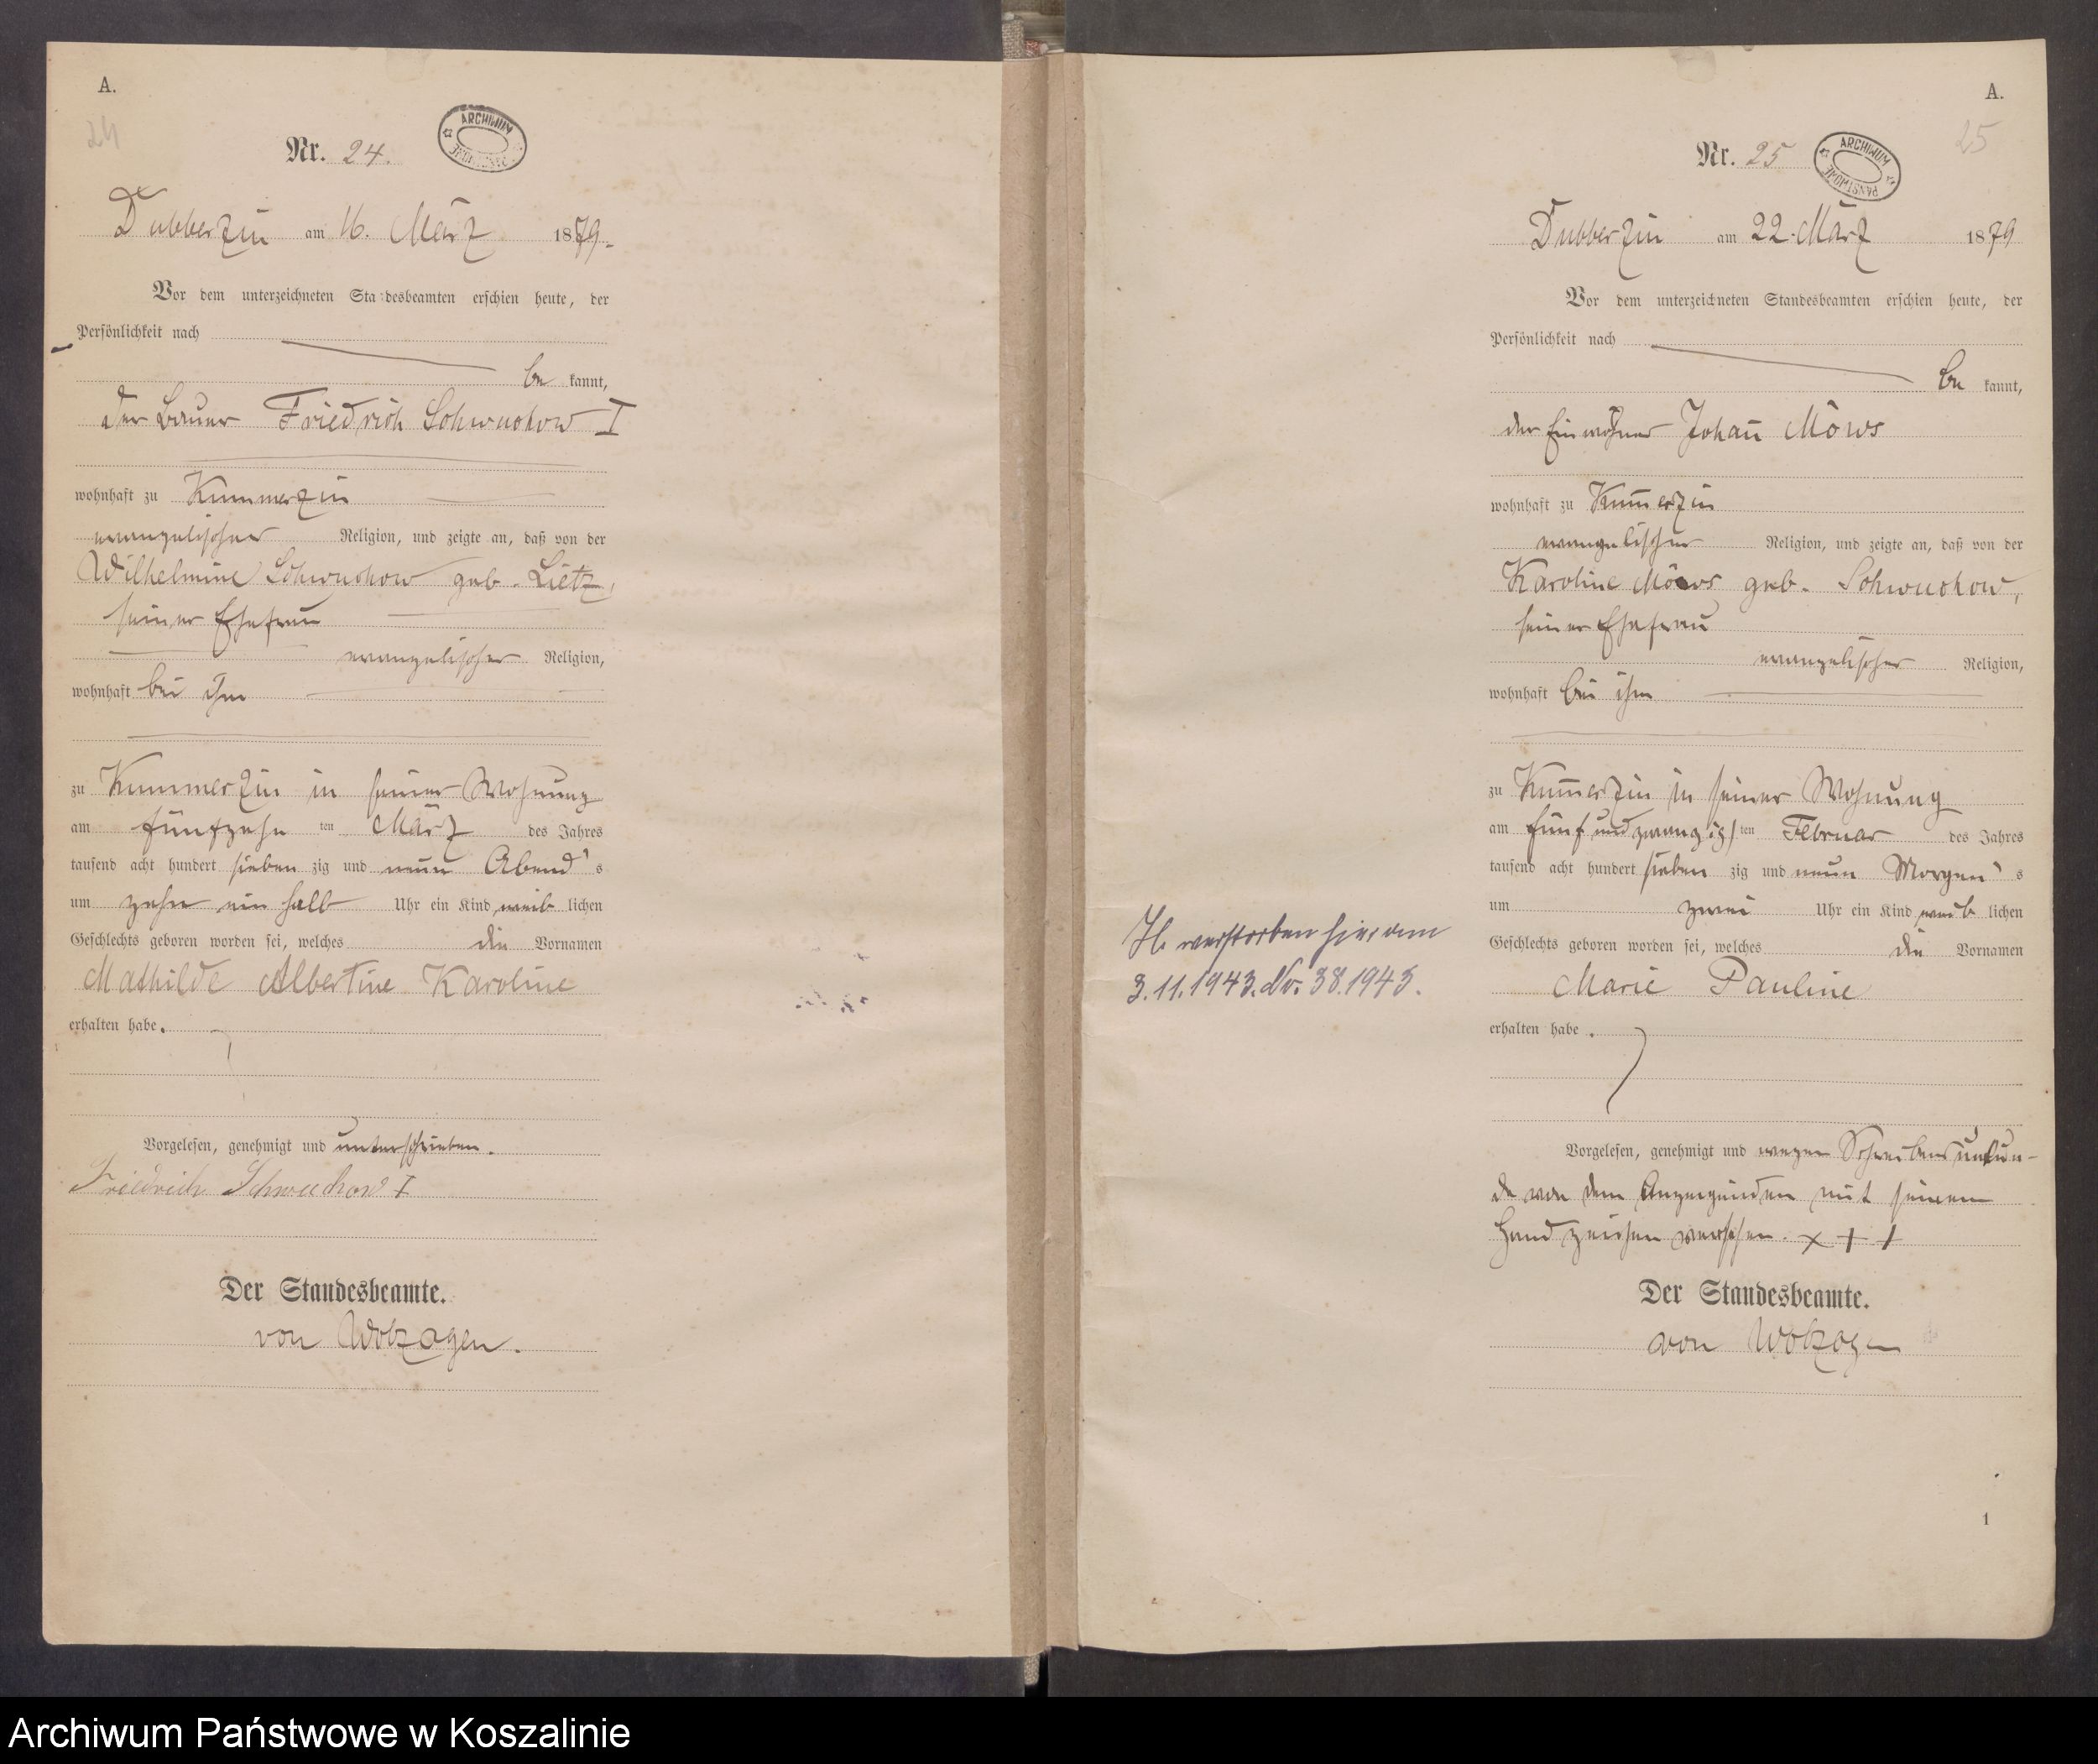 A.
24
Nr. 24.
ARCHIWUM
Dubberzin am 16. März 1879.
Vor dem unterzeichneten Standesbeamten erschien heute, der
Persönlichkeit nach
be kannt,
der Bauer Friedrich Schwuchow I
wohnhaft zu Kummerzin
evangelischer Religion, und zeigte an, daß von der
Wilhelmine Schwuchow geb. Lietz,
seiner Ehefrau
evangelischer Religion,
wohnhaft bei ihm
zu Kummerzin in seiner Wohnung
am fünfzehn ten März des Jahres
tausend acht hundert sieben zig und neun Abend's
um zehn ein halb Uhr ein Kind weib lichen
Geschlechts geboren worden sei, welches die Vornamen
Mathilde Albertine Karoline
erhalten habe.
Vorgelesen, genehmigt und unterschrieben.
Friedrich Schwuchow I
Der Standesbeamte.
von Wolzogen.
A.
25
Nr. 25
ARCHIWUM PAŃSTWOWE
Dubberzin am 22. März 1879
Vor dem unterzeichneten Standesbeamten erschien heute, der
Persönlichkeit nach
be kannt,
der Einwohner Johan̄ Möws
wohnhaft zu Kum̄erzin
evangelischer Religion, und zeigte an, daß von der
Karoline Möws geb. Schwuchow,
seiner Ehefrau
evangelischer Religion,
wohnhaft bei ihm
zu Kum̄erzin in seiner Wohnung
am fünf und zwanzigsten Februar des Jahres
tausend acht hundert sieben zig und neun Morgen's
um zwei Uhr ein Kind weib lichen
Geschlechts geboren worden sei, welches die Vornamen
Marie Pauline
erhalten habe.
Vorgelesen, genehmigt und wegen Schreibensunkun-
de von dem Anzeigenden mit seinem
Handzeichen versehen. x + +
Der Standesbeamte.
von Wolzogen
verstorben hier am
3.11.1943. Nr. 38.1943.
1
Archiwum Państwowe w Koszalinie